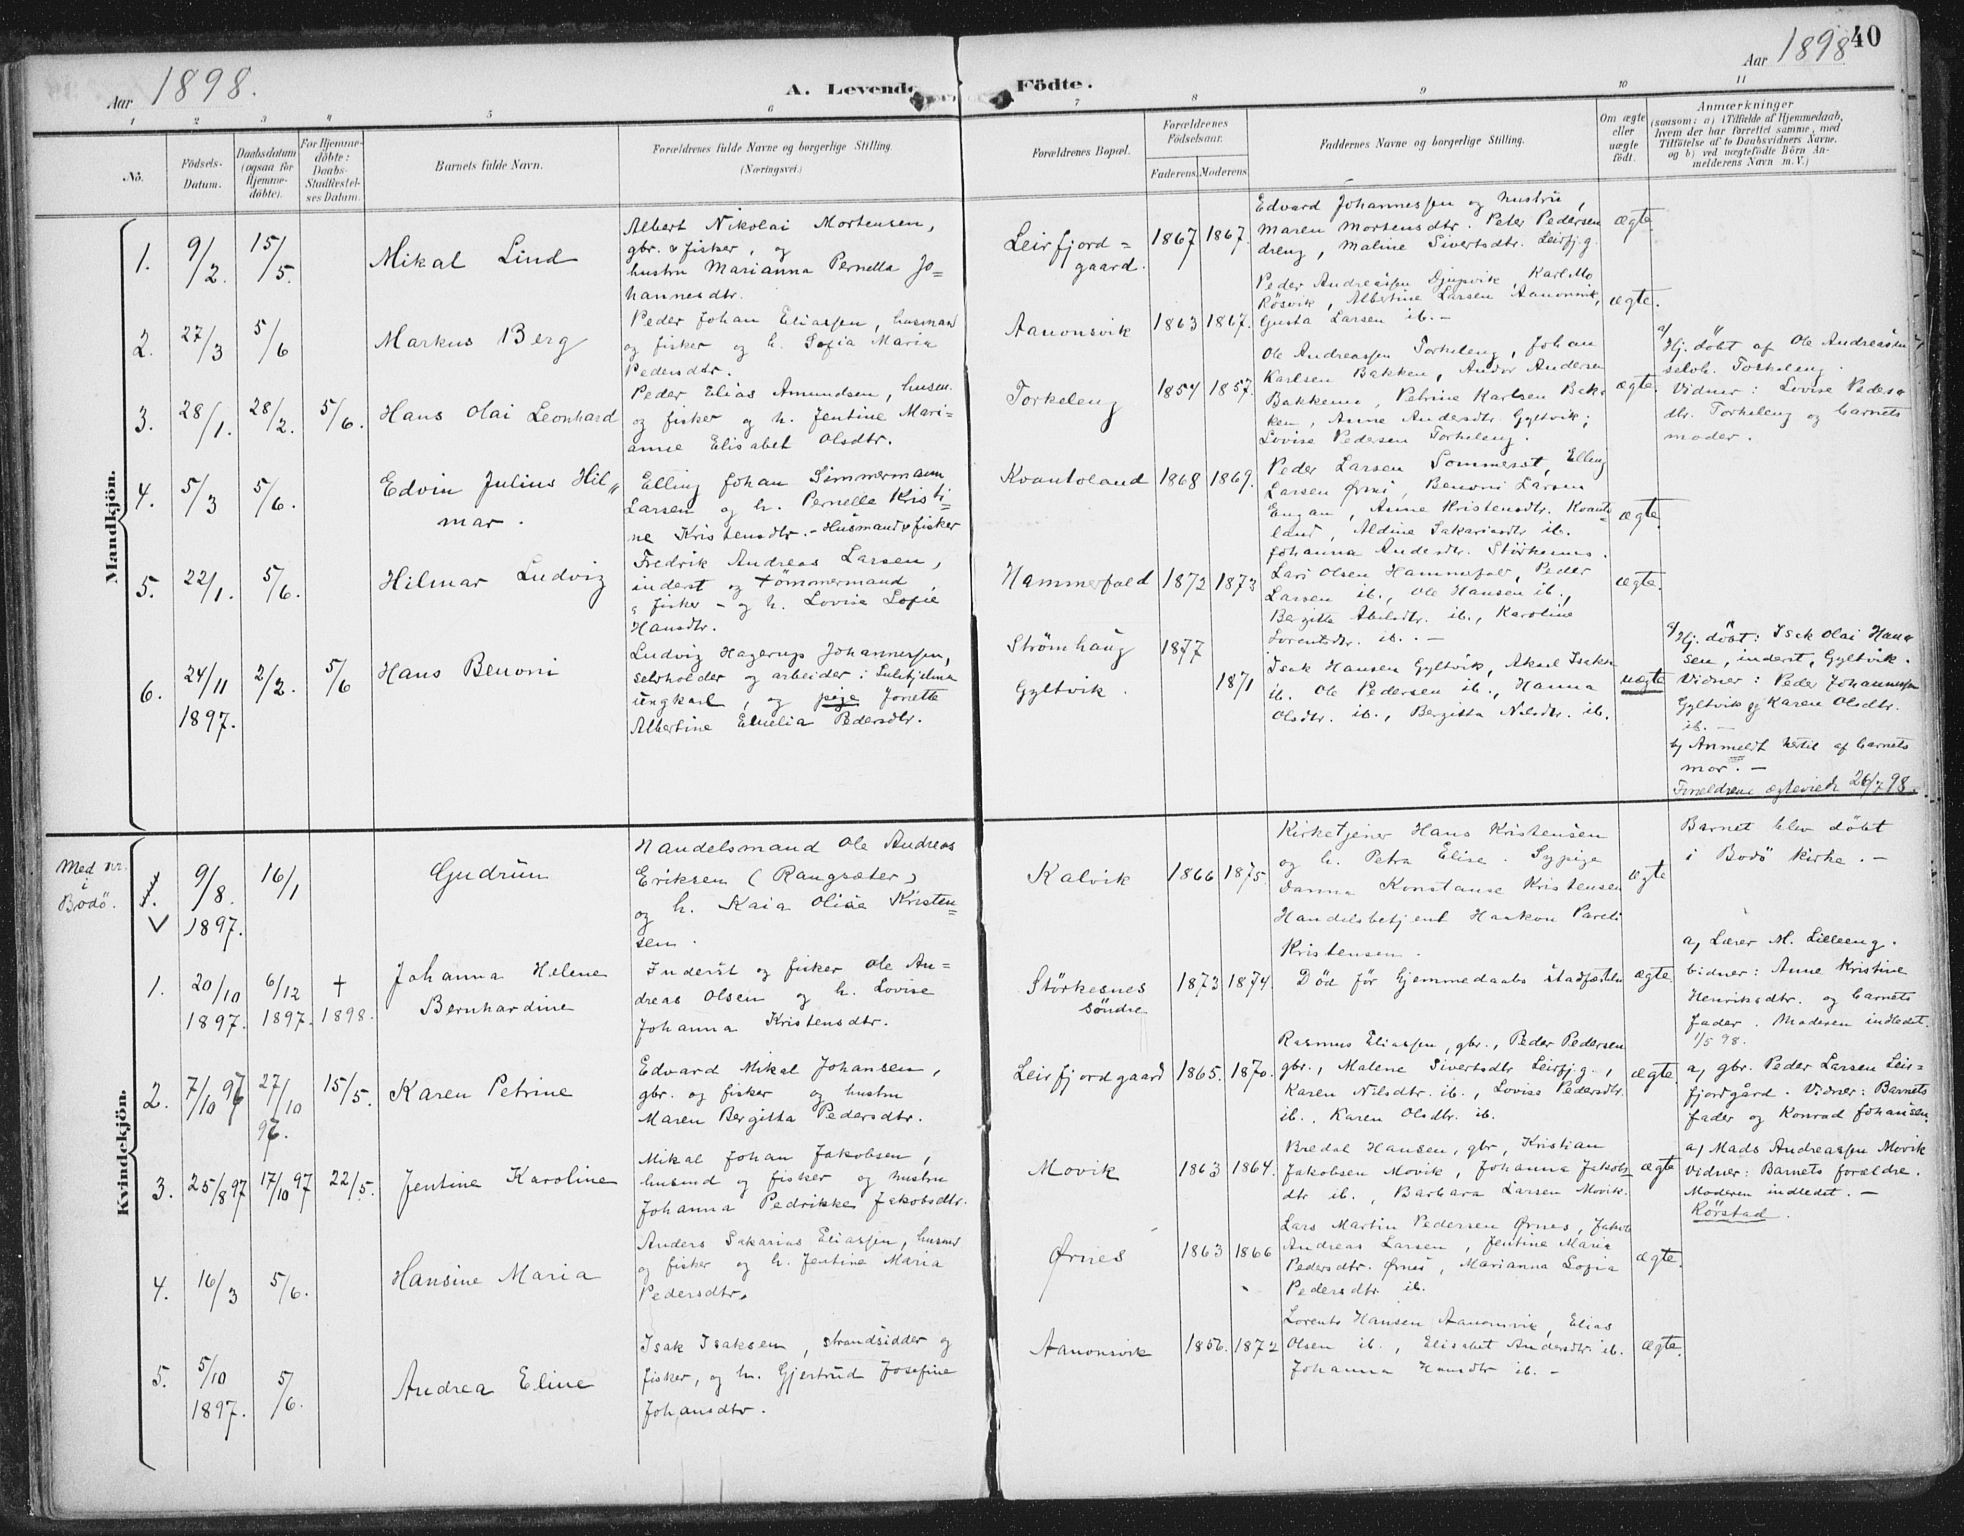 Aar 1898.
A. Levende Födte.
Aar 1898
40
1 2 3 4 5 6 7 8 9 10 11
No.
Födsels-
Datum.
Daabsdatum
(ogsaa for
Hjemme-
döbte).
For Hjemme-
döbte:
Daabs-
Stadfæstel-
ses Datum.
Barnets fulde Navn.
Forældrenes fulde Navne og borgerlige Stilling.
(Næringsvei.)
Forældrenes Bopæl.
Forældrenes
Födselsaar.
Faderens. Moderens.
Faddernes Navne og borgerlige Stilling.
Om ægte
eller
uægte
födt.
Anmærkninger
(saasom: a) i Tilfælde af Hjemmedaab,
hvem der har forrettet samme, med
Tilföielse af to Daabsvidners Navne,
og b) ved uægtefödte Börn An-
melderens Navn m. V.)
Mandkjön.
1.
9/2.
15/5.
Mikal Lind
Albert Nikolai Mortensen,
gbr. & fisker, og
hustru Marianna Pernella Jo-
hannesdtr.
Leirfjord=
gaard.
1867 1867.
Edvard Johannessen og hustru,
Maren Mortensdtr. Peter Pedersen
dreng, Maline Sivertsdtr. Leirfj.g.
ægte.
2.
27/3
5/6
Markus Berg
Peder Johan Eliassen, husmand
og fisker og h. Sofia Maria
Pedersdtr.
Aanonsvik
1863 1867.
Peder Andreassen Djupvik, Karl Mo
Rösvik, Albertine Larsen Aanonsvik,
Gusta Larsen ib. -
ægte.
3.
28/1.
28/2.
5/6.
Hans Olai Leonhard
Peder Elias Amundsen, husm.
og fisker og h. Jentine Mari-
anne Elisabet Olsdtr.
Torkeleng
1854 1857.
Ole Andreassen Torkeleng, Johan
Karlsen Bakken, Andor Andersen
Bakkemo, Petrine Karlsen Bak-
ken, Anne Andersdtr. Gyltvik;
Lovise Pedersen Torkeleng.
ægte.
a/
Hj. döbt af Ole Andreassen
selvb. Torkeleng.
Vidner: Lovise Peders-
dtr. Torkeleng og barnets
moder.
4.
5/3
5/6.
Edvin Julius Hil-
mar.
Elling Johan Simmermann
Larsen og h. Pernella Kristi
ne Kristensdtr. - Husmand & fisker
Kvantoland
1868 1869.
Peder Larsen Sommerset, Elling
Larsen Ørnes, Benoni Larsen
Engan, Anne Kristensdtr. Kvanto-
land, Aldine Sakariasdtr ib.
Johanna Andersdtr. Störkesnes.
ægte.
5.
22/1.
5/6.
Hilmar Ludvig
Fredrik Andreas Larsen,
inderst og tömmermand
& fisker - og h. Lovise Sofie
Hansdtr.
Hammerfald
1872 1873
Lars Olsen Hammerfal, Peder
Larsen ib., Ole Hansen ib.,
Bergitte Abelsdtr. ib., Karoline
Lorentsdtr. ib. -
ægte.
6.
24/11
1897.
2/2.
5/6
Hans Benoni
Ludvig Hagerup Johannessen,
selvholder og arbeider i Sulitjelma
ungkarl, og pige Jonette
Albertine Emelia Pedersdtr.
Strömhaug
Gyltvik.
1877
1871
Isak Hansen Gyltvik, Aksel Isaksen
ib. Ole Pedersen ib., Hanna
Olsdtr. ib., Bergitta Nilsdtr. ib.
uægte
a/ Hj. döbt: Isak Olai Han-
sen, inderst, Gyltvik.
Vidner: Peder Johannessen
Gyltvik og Karen Olsdtr.
ib. -
b/ Anmeldt hertil af barnets
mor. -
Forældrene ægteviede 26/7 98.
Kvindekjön.
Med nr.
i
Bodö.
1.
9/8.
1897.
16/1
Gudrun
Handelsmand Ole Andreas
Eriksen (Rangsæter)
og h. Kaia Olise Kristen-
sen.
Kalvik
1866 1875.
Kirketjener Hans Kristensen
og h. Petra Elise. Sypige
Danna Konstanse Kristensen
Handelsbetjent Haakon Pareli
Kristensen.
ægte
Barnet blev döbt
i Bodö kirke. -
1.
20/10
1897.
6/12
1897.
†
1898.
Johanna Helene
Bernhardine
Inderst og fisker Ole An-
dreas Olsen og h. Lovise
Johanna Kristensdtr.
Störkesnes
söndre
1873 1874.
Död för Hjemmedaabs stadfæstelse
ægte.
a, Lærer M. Lilleeng.
Vidner: Anne Kristine
Henriksdtr. og barnets
fader. Moderen indledet.
1/5 98.
2.
7/10 97
27/10
97.
15/5.
Karen Petrine
Edvard Mikal Johansen,
gbr. og fisker og hustru
Maren Bergitta Pedersdtr.
Leirfjordgaard
1865. 1870.
Rasmus Eliassen, gbr., Peder Pedersen
gbr., Malene Sivertsdtr Leirfj.g.,
Karen Nilsdtr. ib., Lovise Pedersdtr.
ib., Karen Olsdtr. ib.
ægte.
a, gbr. Peder Larsen Leir-
fjordgård. Vidner: Barnets
fader og Konrad Johansen.
3.
25/8 97
17/10 97
22/5.
Jentine Karoline
Mikal Johan Jakobsen,
husmd og fisker og hustru
Johanna Pedrikke Jakobsdtr.
Movik
1863 1864.
Bredal Hansen, gbr, Kristian
Jakobsen Movik, Johanna Jakobs-
dtr ib., Barbara Larsen Movik.
ægte
a, Mads Andreassen Movik
Vidner: Barnets forældre.
Moderen indledet. -
Rörstad.
4.
16/3
5/6.
Hansine Maria
Anders Sakarias Eliassen, husmd
og fisker og h. Jentine Maria
Pedersdtr.
Ørnes
1863 1866
Lars Martin Pedersen Ørnes, Jakob
Andreas Larsen, Jentine Maria
Pedersdtr. Ørnes, Marianna Sofia
Pedersdtr. ib.
ægte.
5.
5/10
1897.
5/6.
Andrea Eline
Isak Isaksen, strandsidder og
fisker, og h. Gjertrud Josefine
Johansdtr.
Aanonsvik
1856. 1872
Lorents Hansen Aanonsvik, Elias
Olsen ib., Elisabet Andersdtr. ib.
Johanna Hansdtr ib. -
ægte.